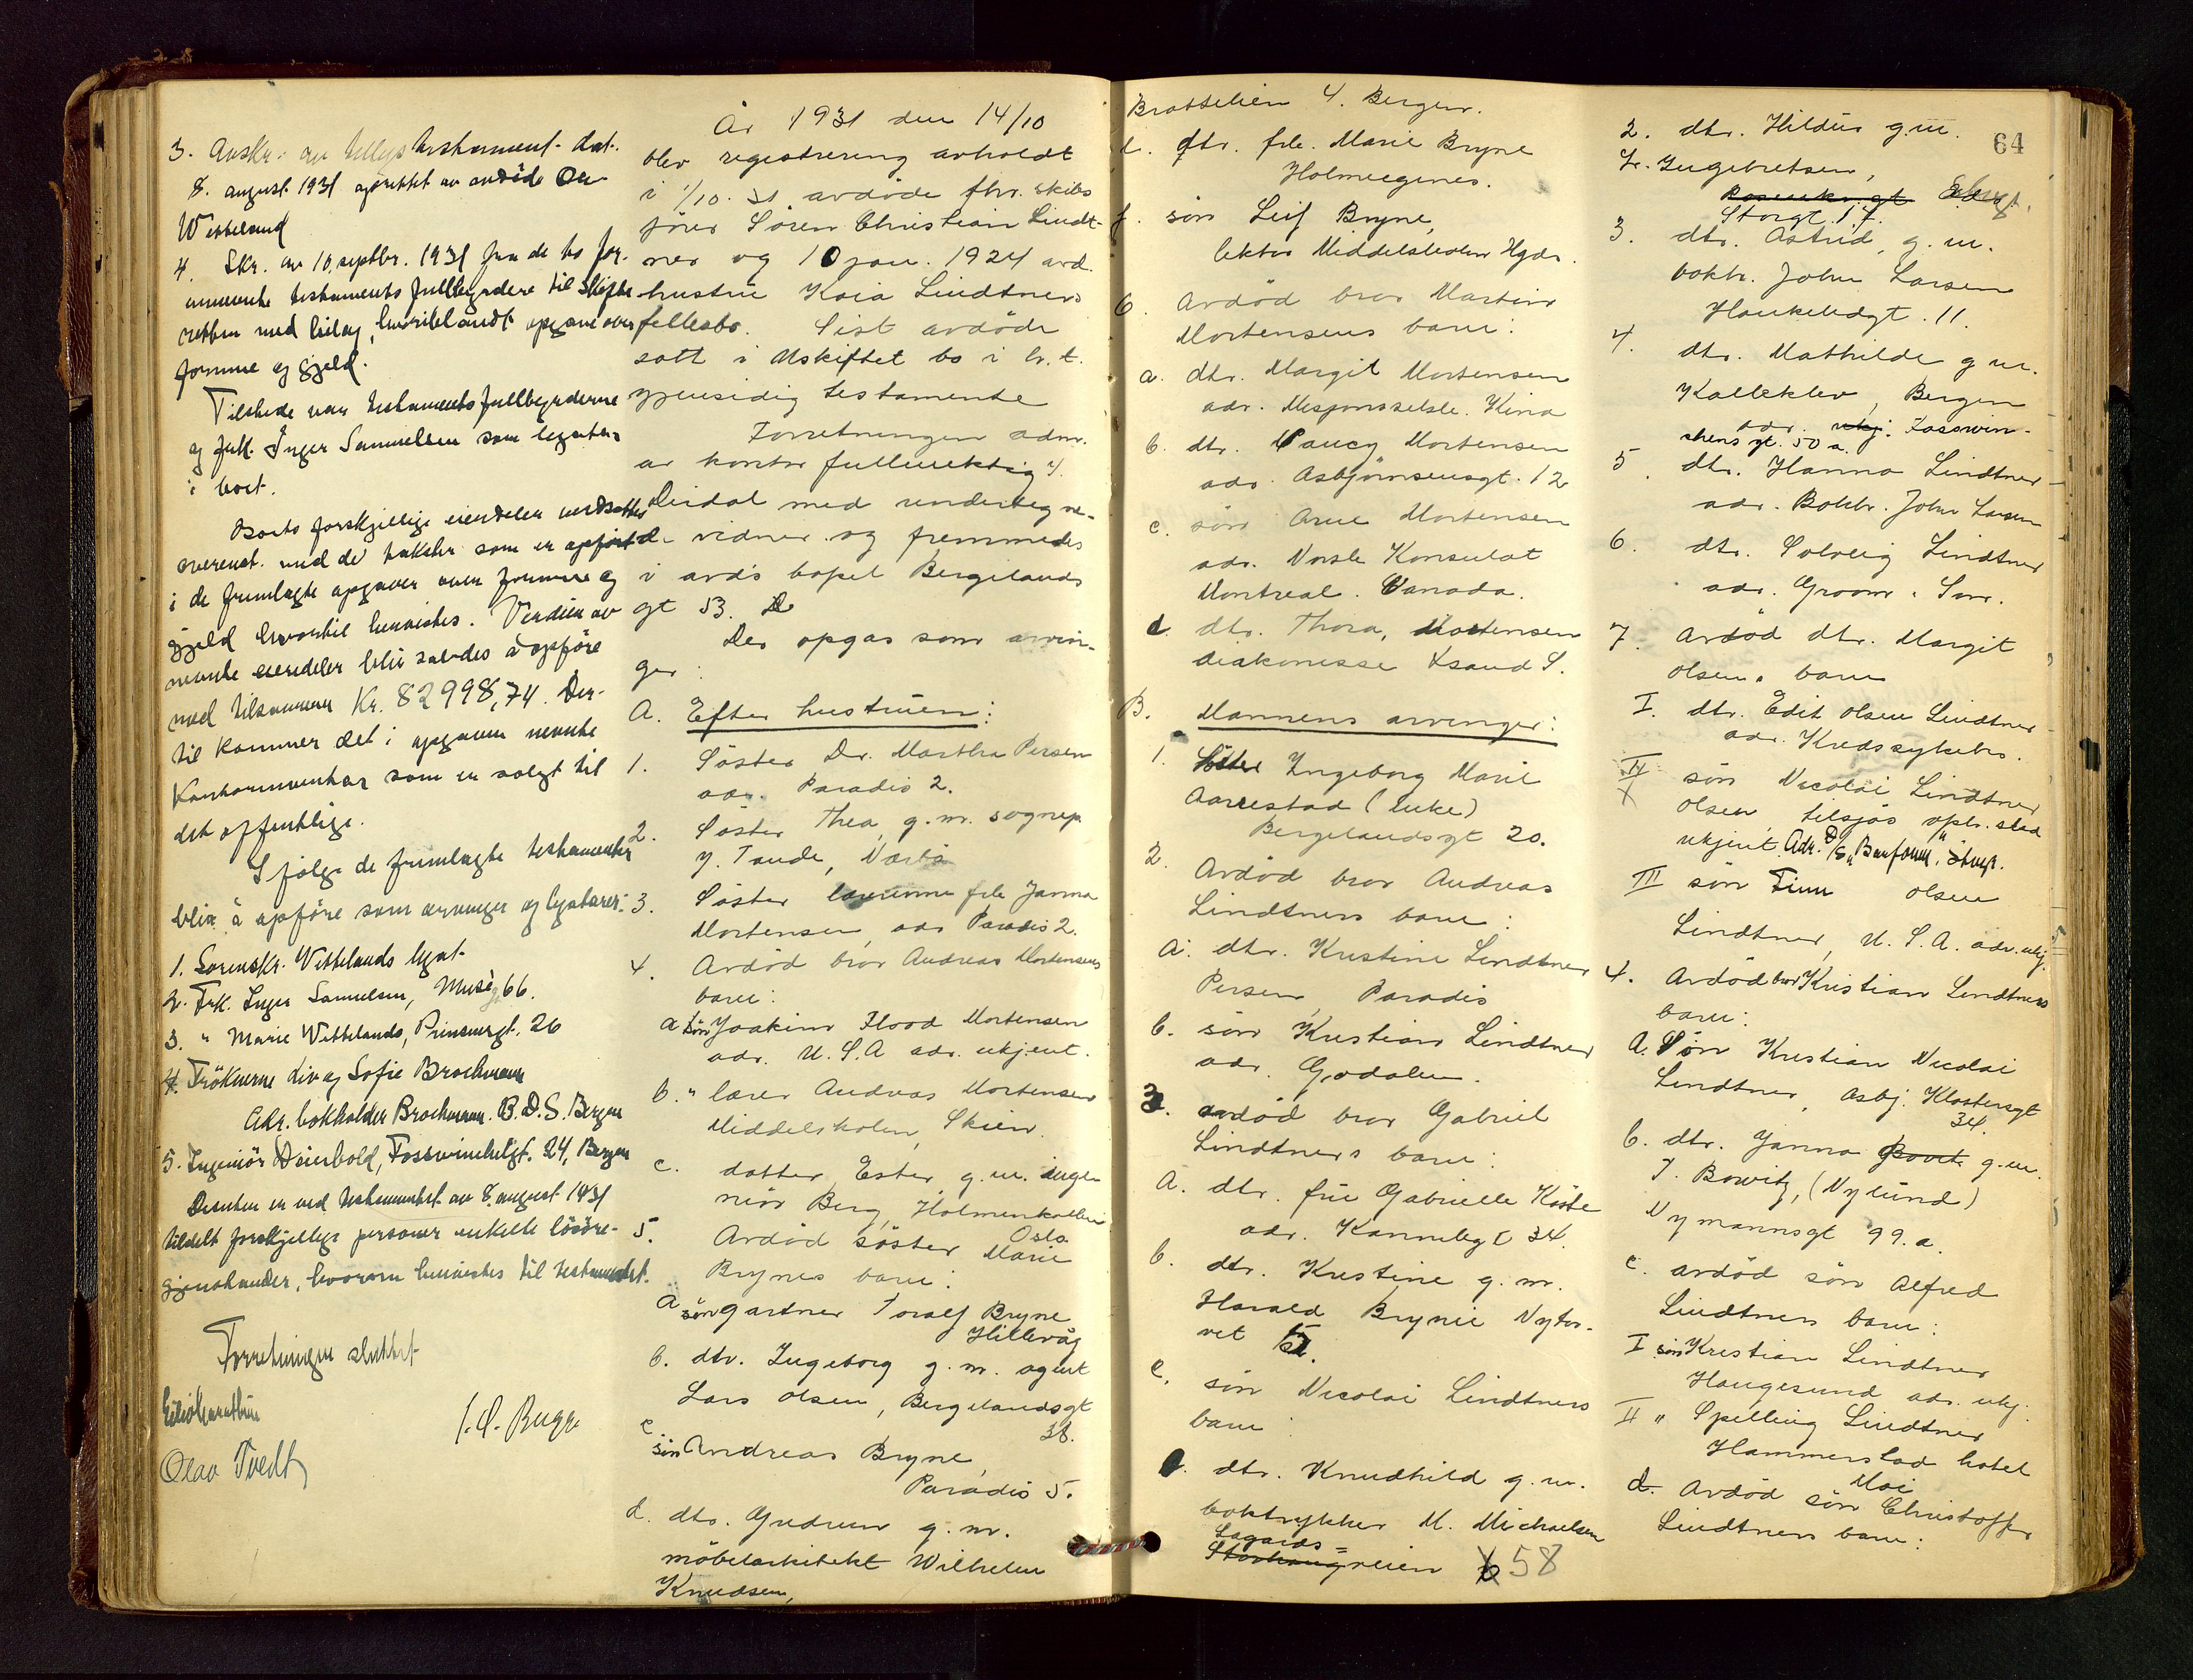 3. Avskr. av tillegs testament dat.
8. august 1931 oprettet av avdöde
Wetteland
4. Skr. av 10. septbr. 1931 fra de to for-
nevnte testaments fullbyrdere til Skifte
retten med bilag, hvoriblandt opgave over
formue og gjeld.
Tilstede var testamentsfullbyrderne
og frk. Inger Samuelsen som legatar
i boet.
Boets forskjellige eiendeler verdsattes
overenst. med de takster som er opfört
i de fremlagte opgaver over formue og
gjeld hvortil henvistes. Verdien av
nevnte eiendeler blir således å opföre
med tilsammen Kr. 82998,74. Der-
til kommer det i opgaven nevnte
Kontorinventar som er solgt til
det offentlige.
I fölge de fremlagte testamenter
blir å opföre som arvinger og legatarer:
1. Sorenskr. Wettelands legat
2. Frk. Inger Samuelsen, Museg. 66.
3. " Marie Wettelands, Prinsensgt. 26
4. Fröknerne Liv og Sofie Brochmann
Adr. bokholder Brochmann. B.D.S. Bergen
5. Ingeniör Deiesbold, Fosswinckelsgt. 24, Bergen
Desuten er ved testamentet av 8. august 1931
tildelt forskjellige personer enkelte lösöre-
gjenstander, hvorom henvistes til testamentet.
Forretningen sluttet
Olav Tvedt
År 1931 den 14/10
blev registrering avholdt
i 1/10. 31 avdöde fhv. skibs
förer Sören Christian Lindt-
ner og 10 jan. 1924 avd.
hustru Kaia Lindtners
fellesbo. Sist avdöde
satt i uskiftet bo i h.t.
gjensidig testamente
Forretningen adm.
av kontor fullmektig
Leidal med undertegne-
de vidner og fremmedes
i avd's bopel Bergelands
gt 53.
Der opgas som arvin-
ger:
A. Efter hustruen:
1. Söster Dr. Martha Persen
adr. Paradis 2.
2. Söster Thea, g.m. sognep.
y. Tande, Nærbö
3. Söster lærerinne frk Janna
Mortensen, adr Paradis 2.
4. Avdöd bror Andreas Mortensens
barn:
a sön Joakim Flood Mortensen
adr. U.S.A adr. ukjent.
b. " lærer Andreas Mortensen
Middelskolen, Skien.
c. datter Ester, g.m. inge-
niör Berg, Holmenkollen
Oslo
5. Avdöd söster Marie
Brynes barn:
a sön gartner Toralf Bryne
Hillevåg
b. dtr. Ingeborg g.m. agent
Lars Olsen, Bergelandsgt
38.
c. sön Andreas Bryne,
Paradis 5.
d. dtr. Gudrun g.m.
möbelarkitekt Wilhelm
Knudsen,
Brattelien 4. Bergen.
e. dtr. frk. Marie Bryne
Holmeegenes.
f. sön Leif Bryne,
lektor Middelskolen Hgds.
6. Avdöd bror Martin
Mortensens barn:
a. dtr. Margit Mortensen
adr. Misjonsselsk. Kina
b. dtr. Fancy Mortensen
adr. Asbjörnsensgt. 12
c. sön Arne Mortensen
adr. Norsk Konsulat
Montreal. Canada.
d. dtr. Thora, Mortensen
diakonisse Krsand S.
B. Mannens arvinger:
1. Söster Ingeborg Marie
Aarrestad (enke)
Bergelandsgt 20.
2. Avdöd bror Andreas
Lindtners barn:
a. dtr. Kristine Lindtner
Persen, Paradis
b. sön Kristian Lindtner
adr. Godalen.
3. avdöd bror Gabriel
Lindtners barn:
a. dtr. frue Gabrielle
adr. Kannikgt 34.
b. dtr. Kristine g.m.
Harald Brynie Nytor-
vet 5.
c. sön Nicolai Lindtners
barn:
1. dtr. Knudhild g.m.
boktrykker M. Michaelsen
Lagårds=
Storhaugveien 58
64
2. dtr. Hildur g.m.
Fr. Ingebretsen,
Rosenkr.gt
Storgt. 17.
3. dtr. Astrid, g.m.
bokh. John Larsen
Haukeligt. 11.
4. dtr. Mathilde g m.
Kalleklev, Bergen
adr. ukj. Fosswin-
ckens gt. 50 a.
5. dtr. Hanna Lindtner
adr. Bokh. John Larsen
6. dtr. Solveig Lindtner
adr. Groom. Son.
7. Avdöd dtr. Margit
Olsens barn
I. dtr. Edit Olsen Lindtner
adr. Kredssykehs.
II sön Nicolai Lindtner
Olsen, tilsjös opr. sted
ukjent. Adr. D/S "Banfonn", Stvgr.
III sön Finn Olsen
Lindtner, U.S.A. adr. ukj.
4. Avdöd bror Kristian Lindtners
barn:
a. Sön Kristian Nicolai
Lindtner, Asbj. Klostersgt
34.
b. dtr. Janna Bovit g.m.
T. Bowitz, (Nylund)
Nymannsgt 99.a.
c. avdöd sön Alfred
Lindtners barn:
I sön Kristian Lindtner
Haugesund adr. ukj.
II " Spelling Lindtner
Hammerstad hotel
Moi
d. Avdöd sön Christoffer
Lindtners barn: